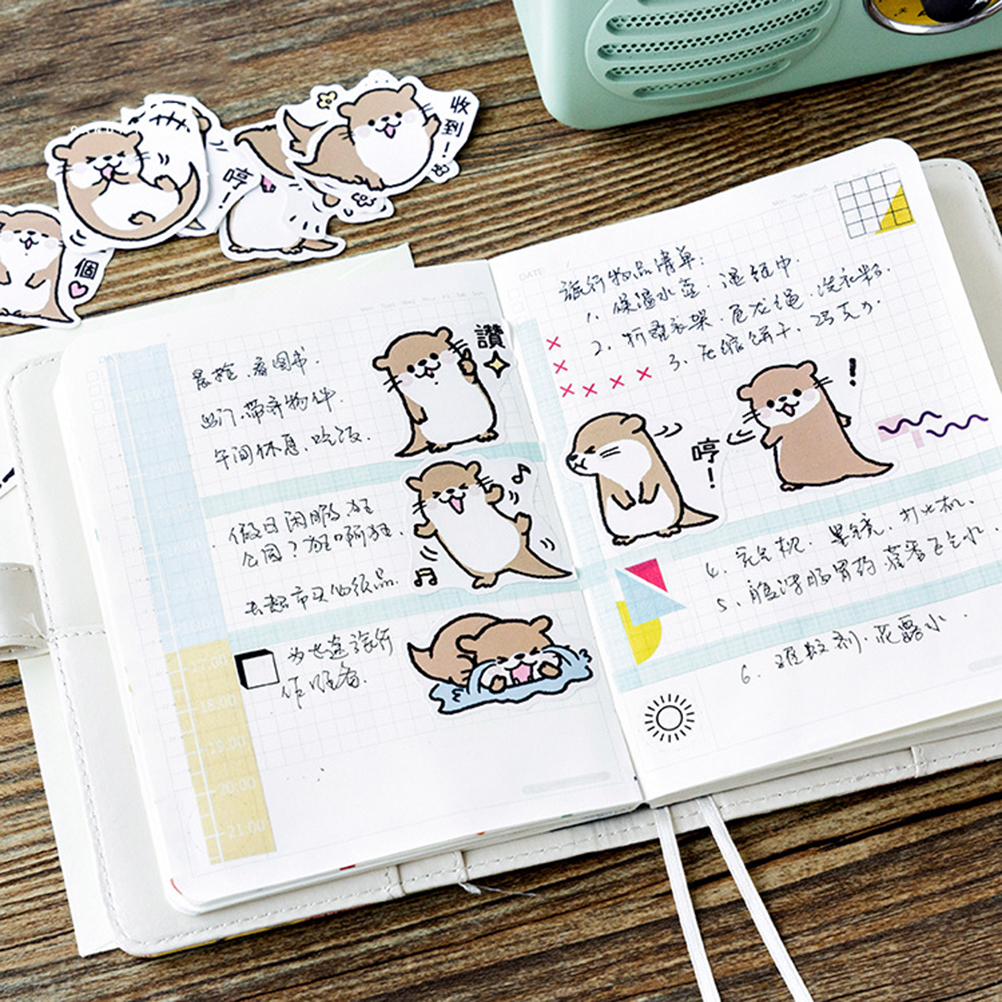 收到!
哼!
個
讚
晨抢.看图书.
出门.带齐物件.
午间休息.吃饭.
假日闲暇逛
公园?逛啊逛.
去超市买他纸品.
为七连旅行
作准备.
17:00
18:00
19:00
20:00
21:00
DATE
旅行物品清单:
1. 保温水壶.湿纸巾.
2. 折叠衣架.尼龙绳.洗衣粉.
3. 压缩饼干.巧克力.
哼!
!
4. 充电机.墨镜.打火机.
5. 肠胃药.藿香正气水.
6. 驱蚊剂.花露水.